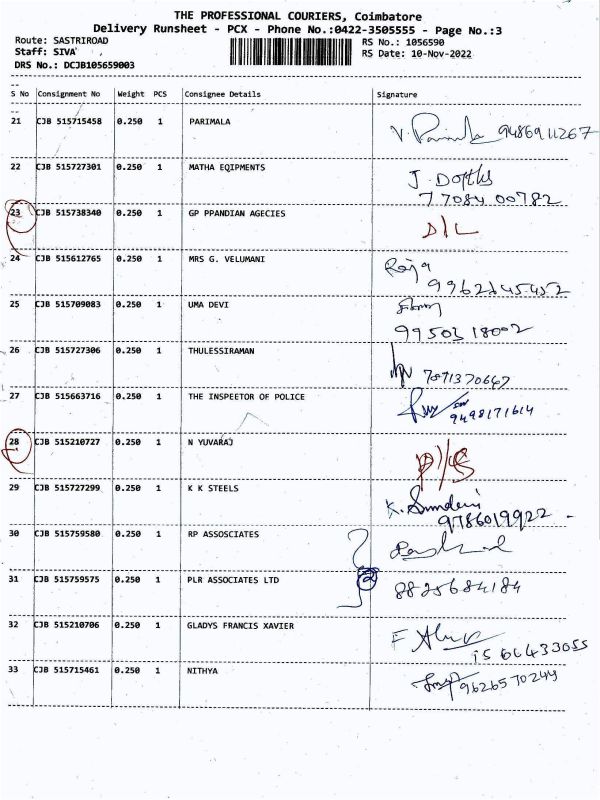 THE PROFESSIONAL COURIERS, Coimbatore
Delivery Runsheet - PCX - Phone No.:0422-3505555 - Page No.:3
Route: SASTRIROAD RS No.: 1056590
Staff: SIVA RS Date: 10-Nov-2022
DRS No.: DCJB105659003
--
S No Consignment No Weight PCS Consignee Details Signature
--
21 CJB 515715458 0.250 1 PARIMALA 9486911267
22 CJB 515727301 0.250 1 MATHA EQIPMENTS J.
77084 00782
23 CJB 515738340 0.250 1 GP PPANDIAN AGECIES D/L
24 CJB 515612765 0.250 1 MRS G. VELUMANI Raja
25 CJB 515709083 0.250 1 UMA DEVI
99503 18002
26 CJB 515727306 0.250 1 THULESSIRAMAN
7871370667
27 CJB 515663716 0.250 1 THE INSPEETOR OF POLICE
9498171614
28 CJB 515210727 0.250 1 N YUVARAJ
29 CJB 515727299 0.250 1 K K STEELS K.
9786019922
30 CJB 515759580 0.250 1 RP ASSOSCIATES
31 CJB 515759575 0.250 1 PLR ASSOCIATES LTD 2 8825684184
32 CJB 515210706 0.250 1 GLADYS FRANCIS XAVIER F
33 CJB 515715461 0.250 1 NITHYA 9626570244